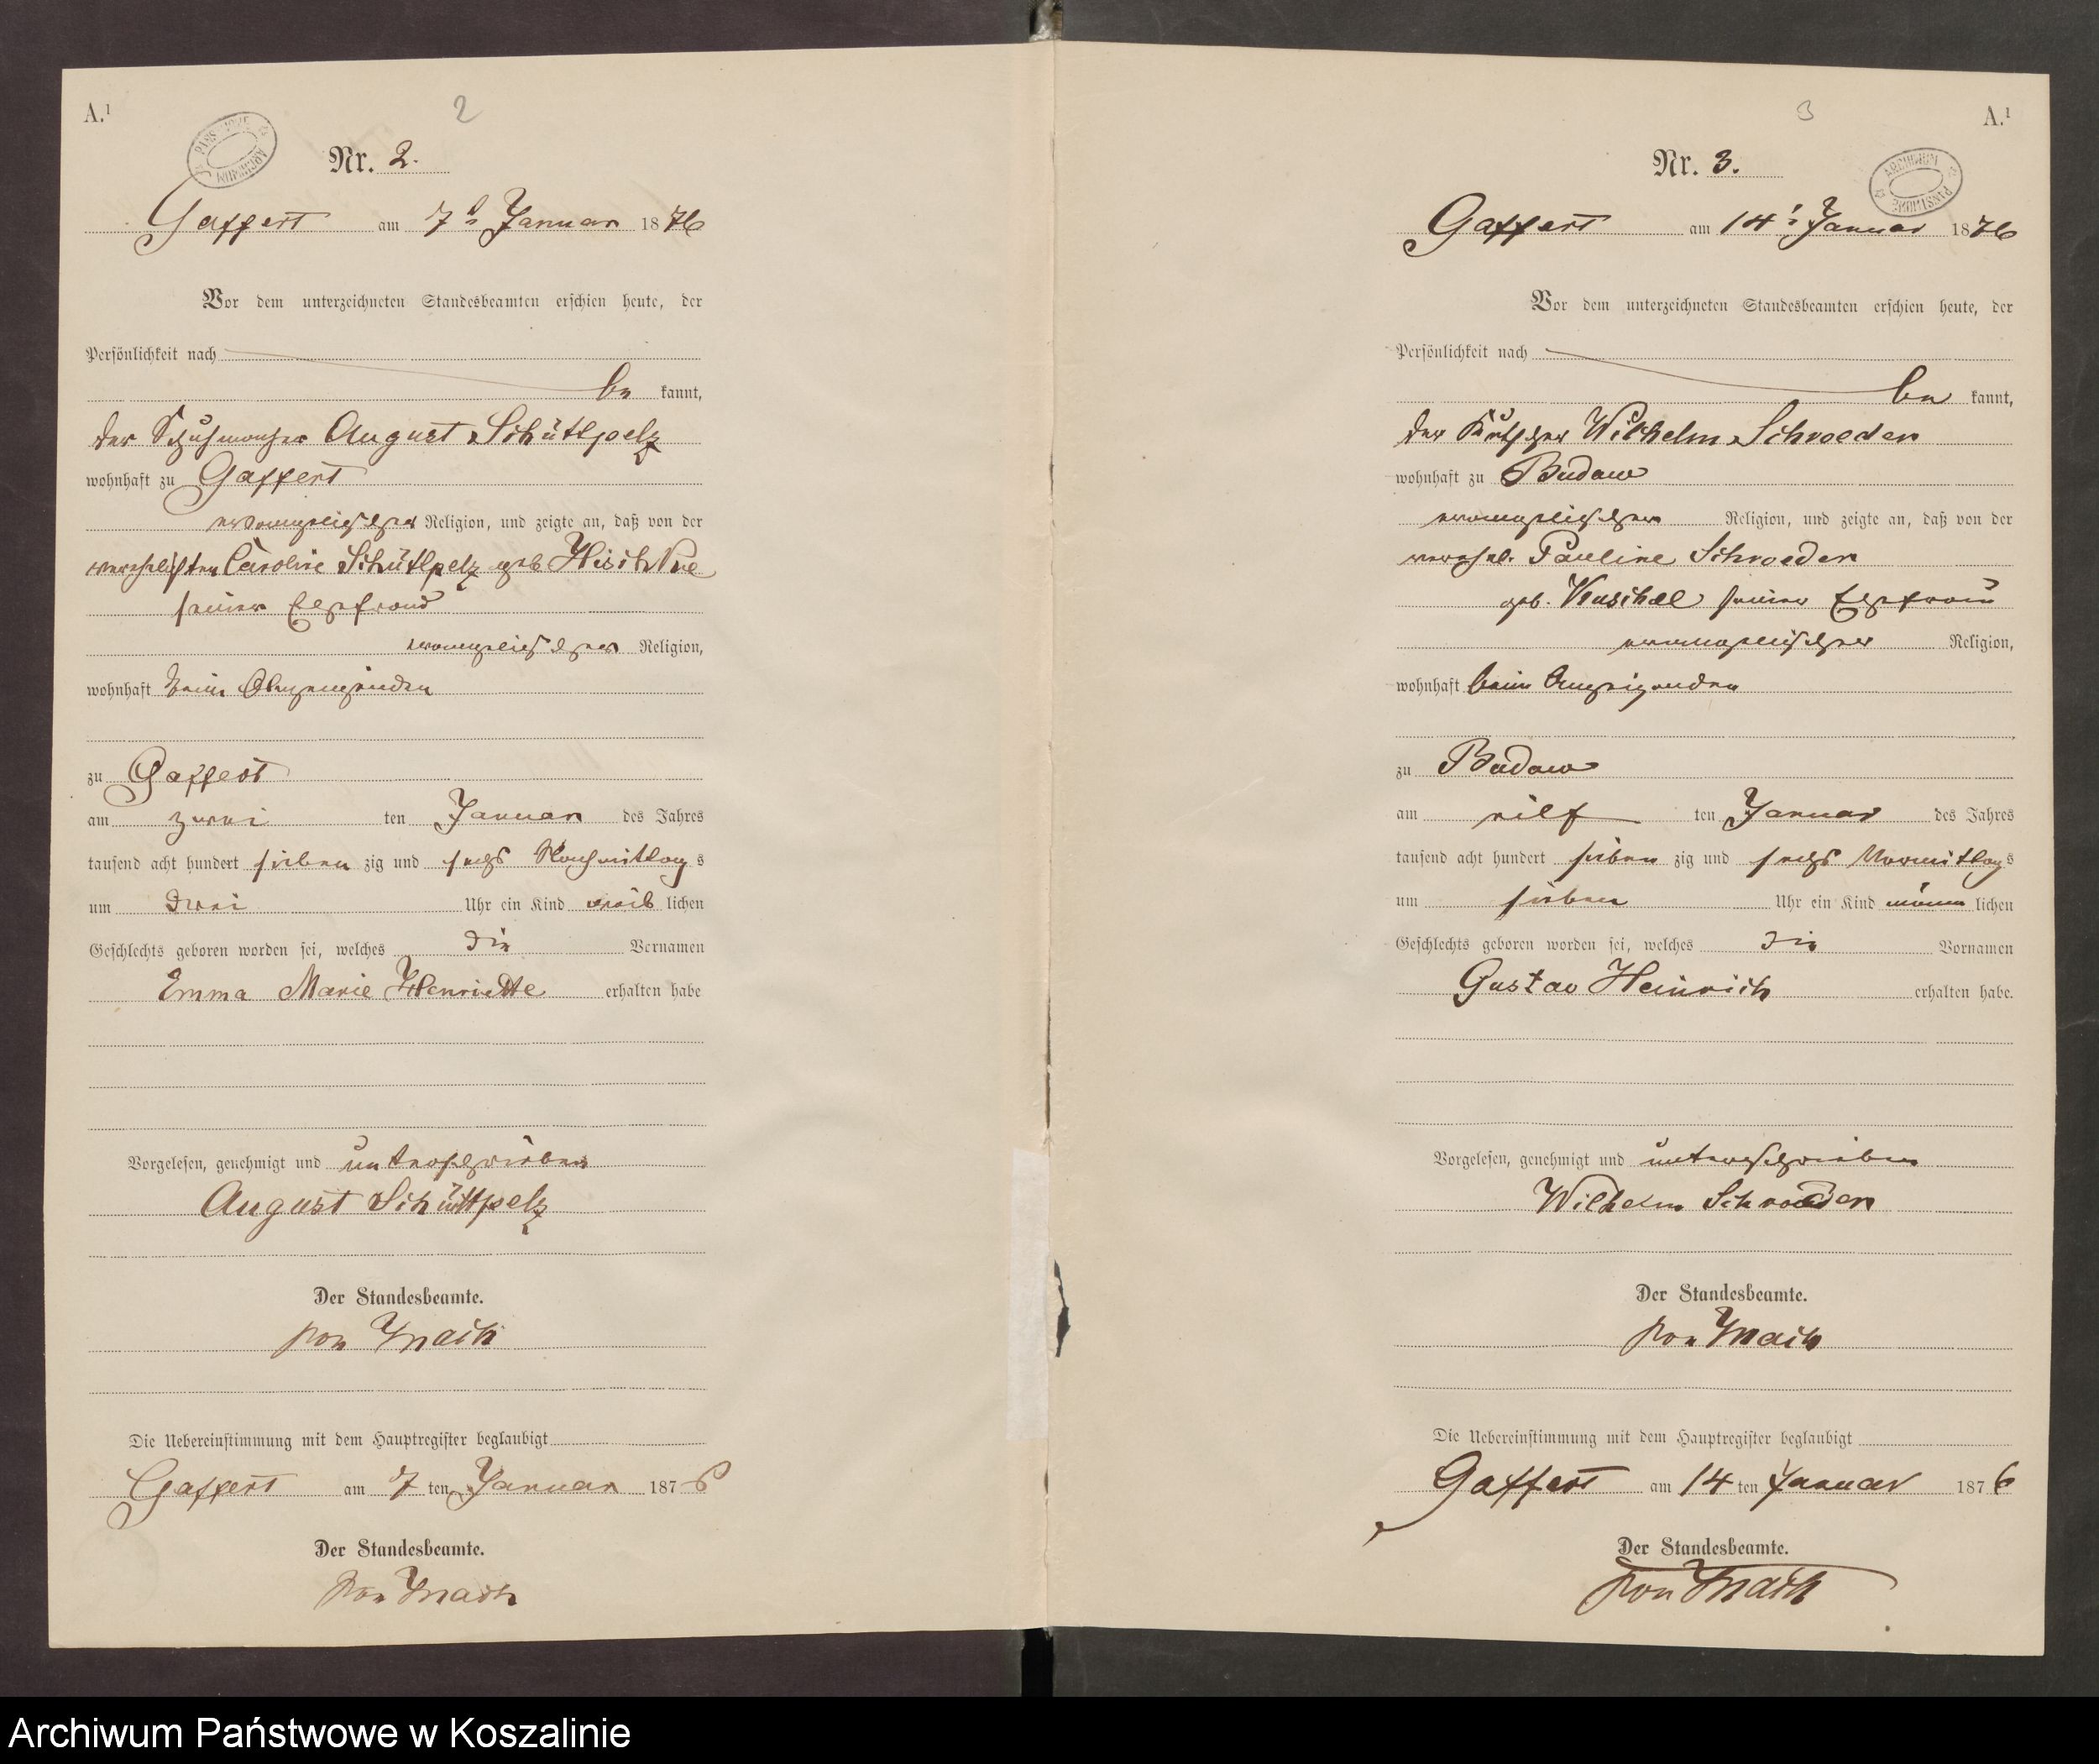 A.¹
2
Nr. 2.
Gaffert am 7ᵗ Januar 1876
Vor dem unterzeichneten Standesbeamten erschien heute, der
Persönlichkeit nach
be kannt,
der Schuhmacher August Schüttpelz
wohnhaft zu Gaffert
evangelischer Religion, und zeigte an, daß von der
verehelichten Caroline Schüttpelz geb
seiner Ehefrau
evangelischer Religion,
wohnhaft beim Anzeigenden
zu Gaffert
am zwei ten Januar des Jahres
tausend acht hundert sieben zig und sechs Nachmittag s
um drei Uhr ein Kind weib lichen
Geschlechts geboren worden sei, welches die Vornamen
Emma Marie Henriette erhalten habe
Vorgelesen, genehmigt und unterschrieben
August Schüttpelz
Der Standesbeamte.
von
Die Uebereinstimmung mit dem Hauptregister beglaubigt
Gaffert am 7 ten Januar 1876
Der Standesbeamte.
von
3
A.¹
ARCHIWUM PAŃSTWOWE
Nr. 3.
Gaffert am 14ᵗ Januar 1876
Vor dem unterzeichneten Standesbeamten erschien heute, der
Persönlichkeit nach
be kannt,
der Kutscher Wilhelm Schroeder
wohnhaft zu Budow
evangelischer Religion, und zeigte an, daß von der
verehel. Pauline Schroeder
geb. Kuschel seiner Ehefrau
evangelischer Religion,
wohnhaft beim Anzeigenden
zu Budow
am eilf ten Januar des Jahres
tausend acht hundert sieben zig und sechs Vormittag s
um sieben Uhr ein Kind männ lichen
Geschlechts geboren worden sei, welches die Vornamen
Gustav Heinrich erhalten habe.
Vorgelesen, genehmigt und unterschrieben
Wilhelm Schroeder
Der Standesbeamte.
von
Die Uebereinstimmung mit dem Hauptregister beglaubigt
Gaffert am 14 ten Januar 1876
Der Standesbeamte.
von
Archiwum Państwowe w Koszalinie